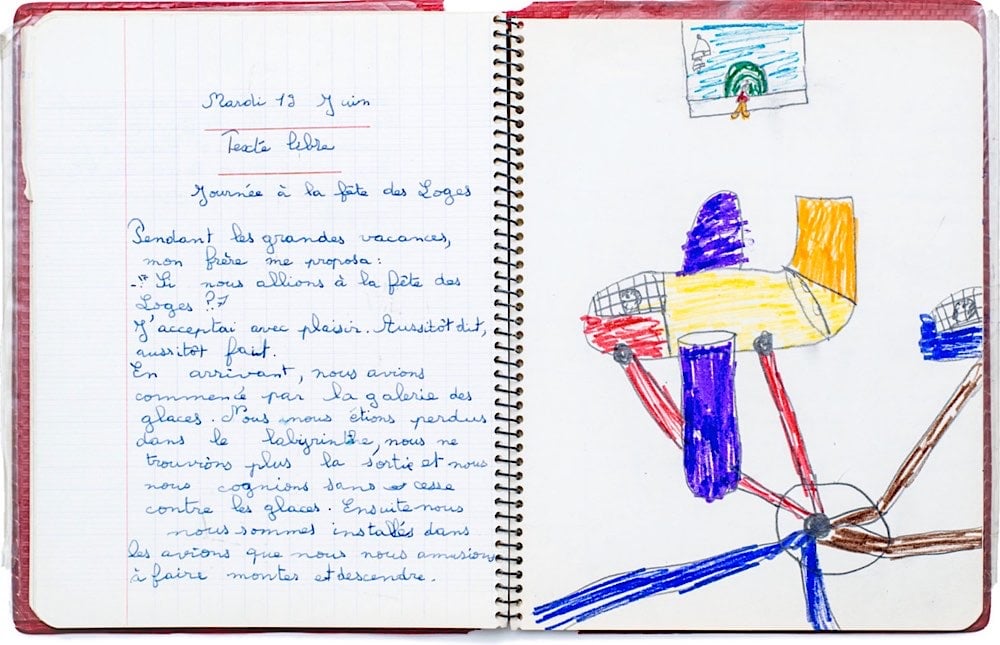 Mardi 12 Juin
Texte libre
Journée à la fête des Loges
Pendant les grandes vacances,
mon frère me proposa :
-" Si nous allions à la fête des
Loges ? "
J'acceptai avec plaisir. Aussitôt dit,
aussitôt fait.
En arrivant, nous avions
commencé par la galerie des
glaces. Nous nous étions perdus
dans le labyrinthe, nous ne
trouvions plus la sortie et nous
nous cognions sans cesse
contre les glaces. Ensuite nous
nous sommes installés dans
les avions que nous nous amusions
à faire montes et descendre.